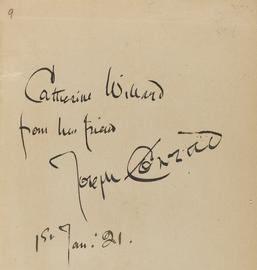 9
Catherine Willard
from her friend
Joseph Conrad
1st Jan: 21.